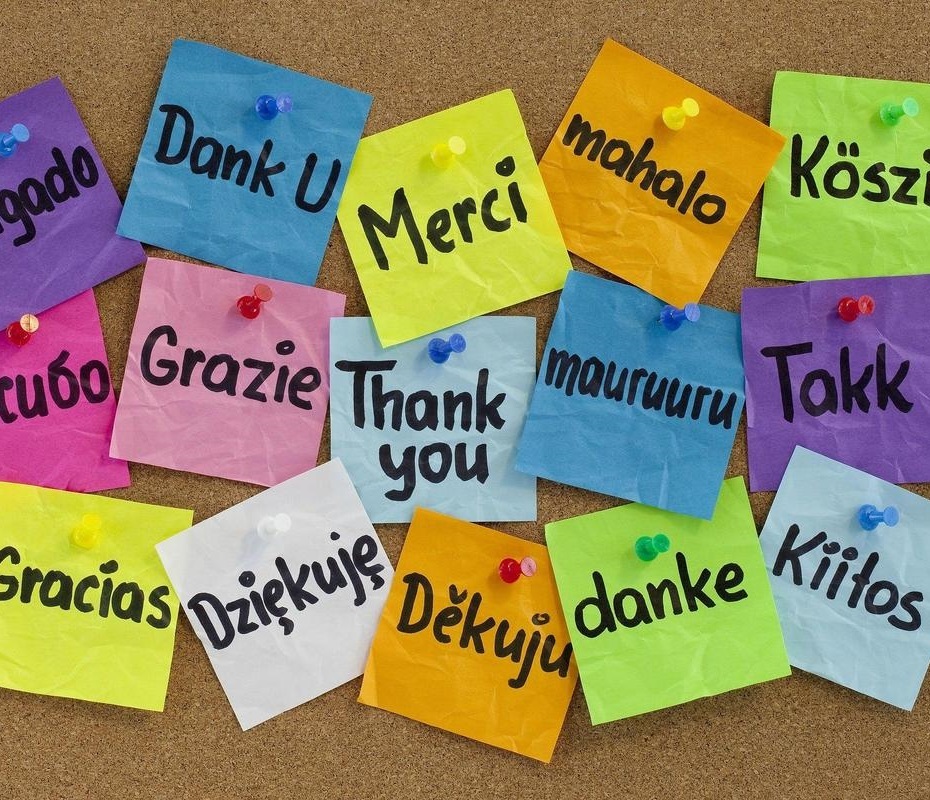 gado
Dank U
Merci
mahalo
Köszi
сибо
Grazie
Thank
you
mauruuru
Takk
Gracías
Dziękuję
Děkuju
danke
Kiitos